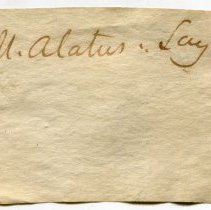 M. Alatus. Say